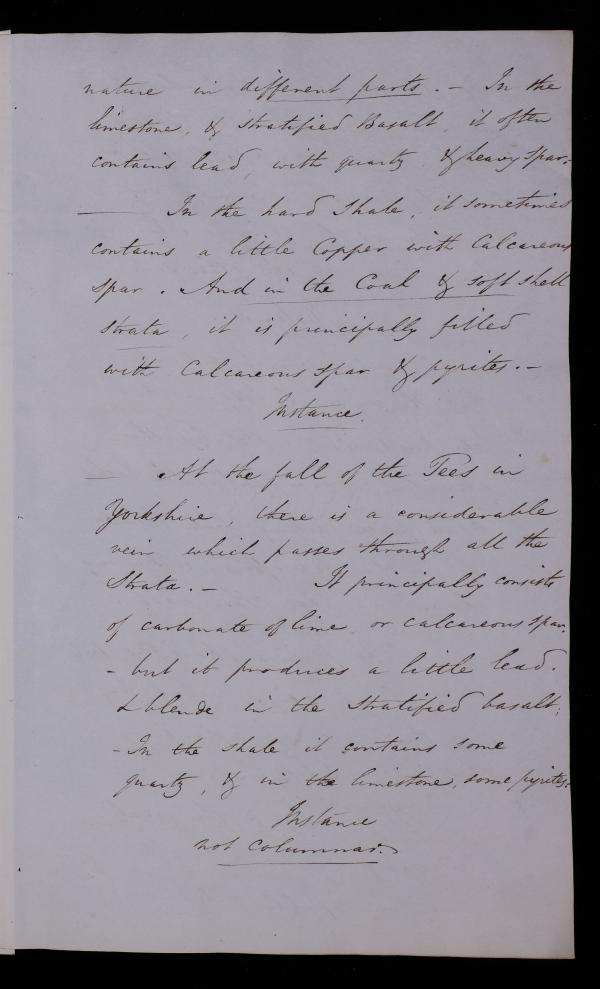 nature in different parts. - In the
limestone, & stratified Basalt, it often
contains lead, with quartz & heavy spar.-
— In the hard Shale, it sometimes
contains a little Copper with Calcareous
spar. And in the Coal & soft shell
strata, it is principally filled
with Calcareous spar & pyrites. -
Instance.
— At the fall of the Tees in
Yorkshire, there is a considerable
vein which passes through all the
Strata. - It principally consists
of carbonate of lime or calcareous spar.
- but it produces a little lead.
& blende in the stratified basalt;
- In the shale it contains some
quartz, & in the limestone, some pyrites.
Instance
not columnar.